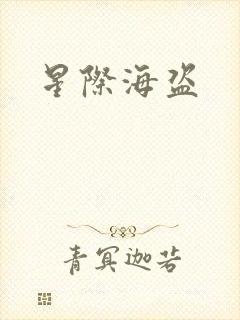 星際海盗
青冥迦若